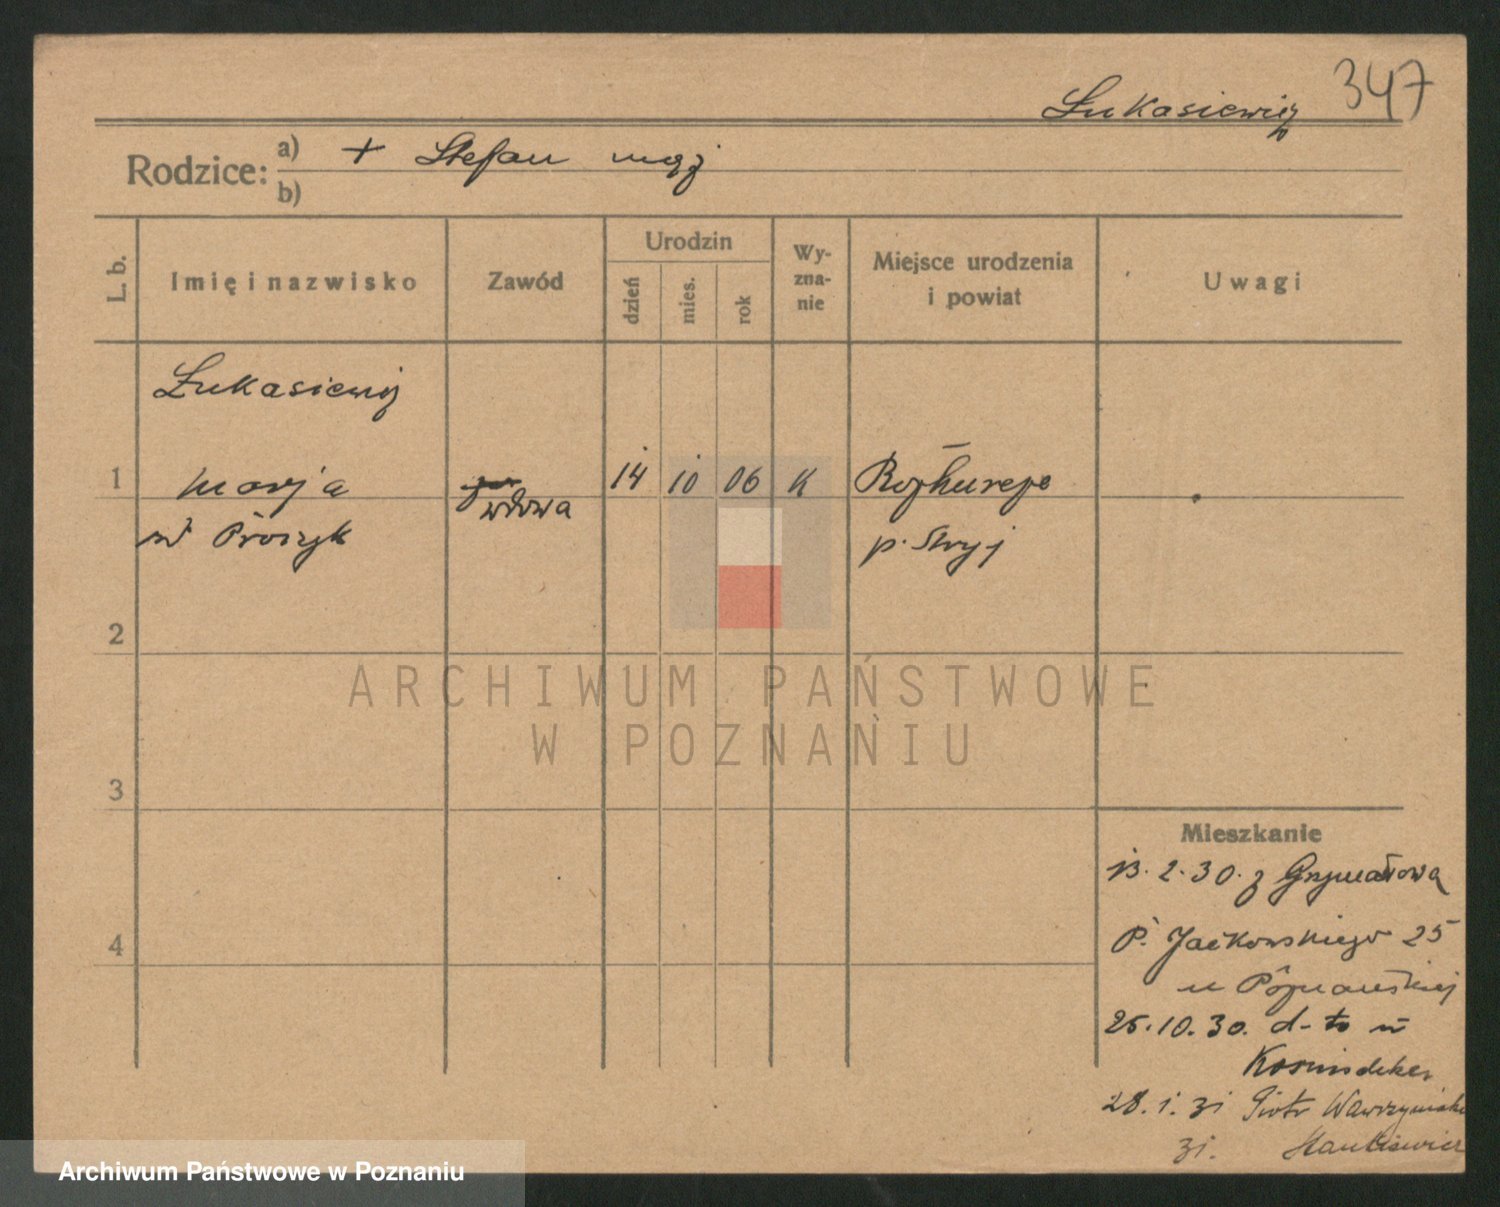 347
Łukasiewicz
Rodzice: a) + Stefan mąż
b)
L. b. Imię i nazwisko Zawód Urodzin dzień mies. rok Wyznanie Miejsce urodzenia i powiat Uwagi
Łukasiewicz
1 Marja wdowa 14 10 06 K
Prószyk p. Stryj
2
3
4
Mieszkanie
13.2.30. z Grzymałowa
P. Jackowskiego 25
u Poznańskiej
25.10.30. d-to u
28.1.31 Piotr
31. Stankiewicz
ARCHIWUM PAŃSTWOWE
W POZNANIU
Archiwum Państwowe w Poznaniu